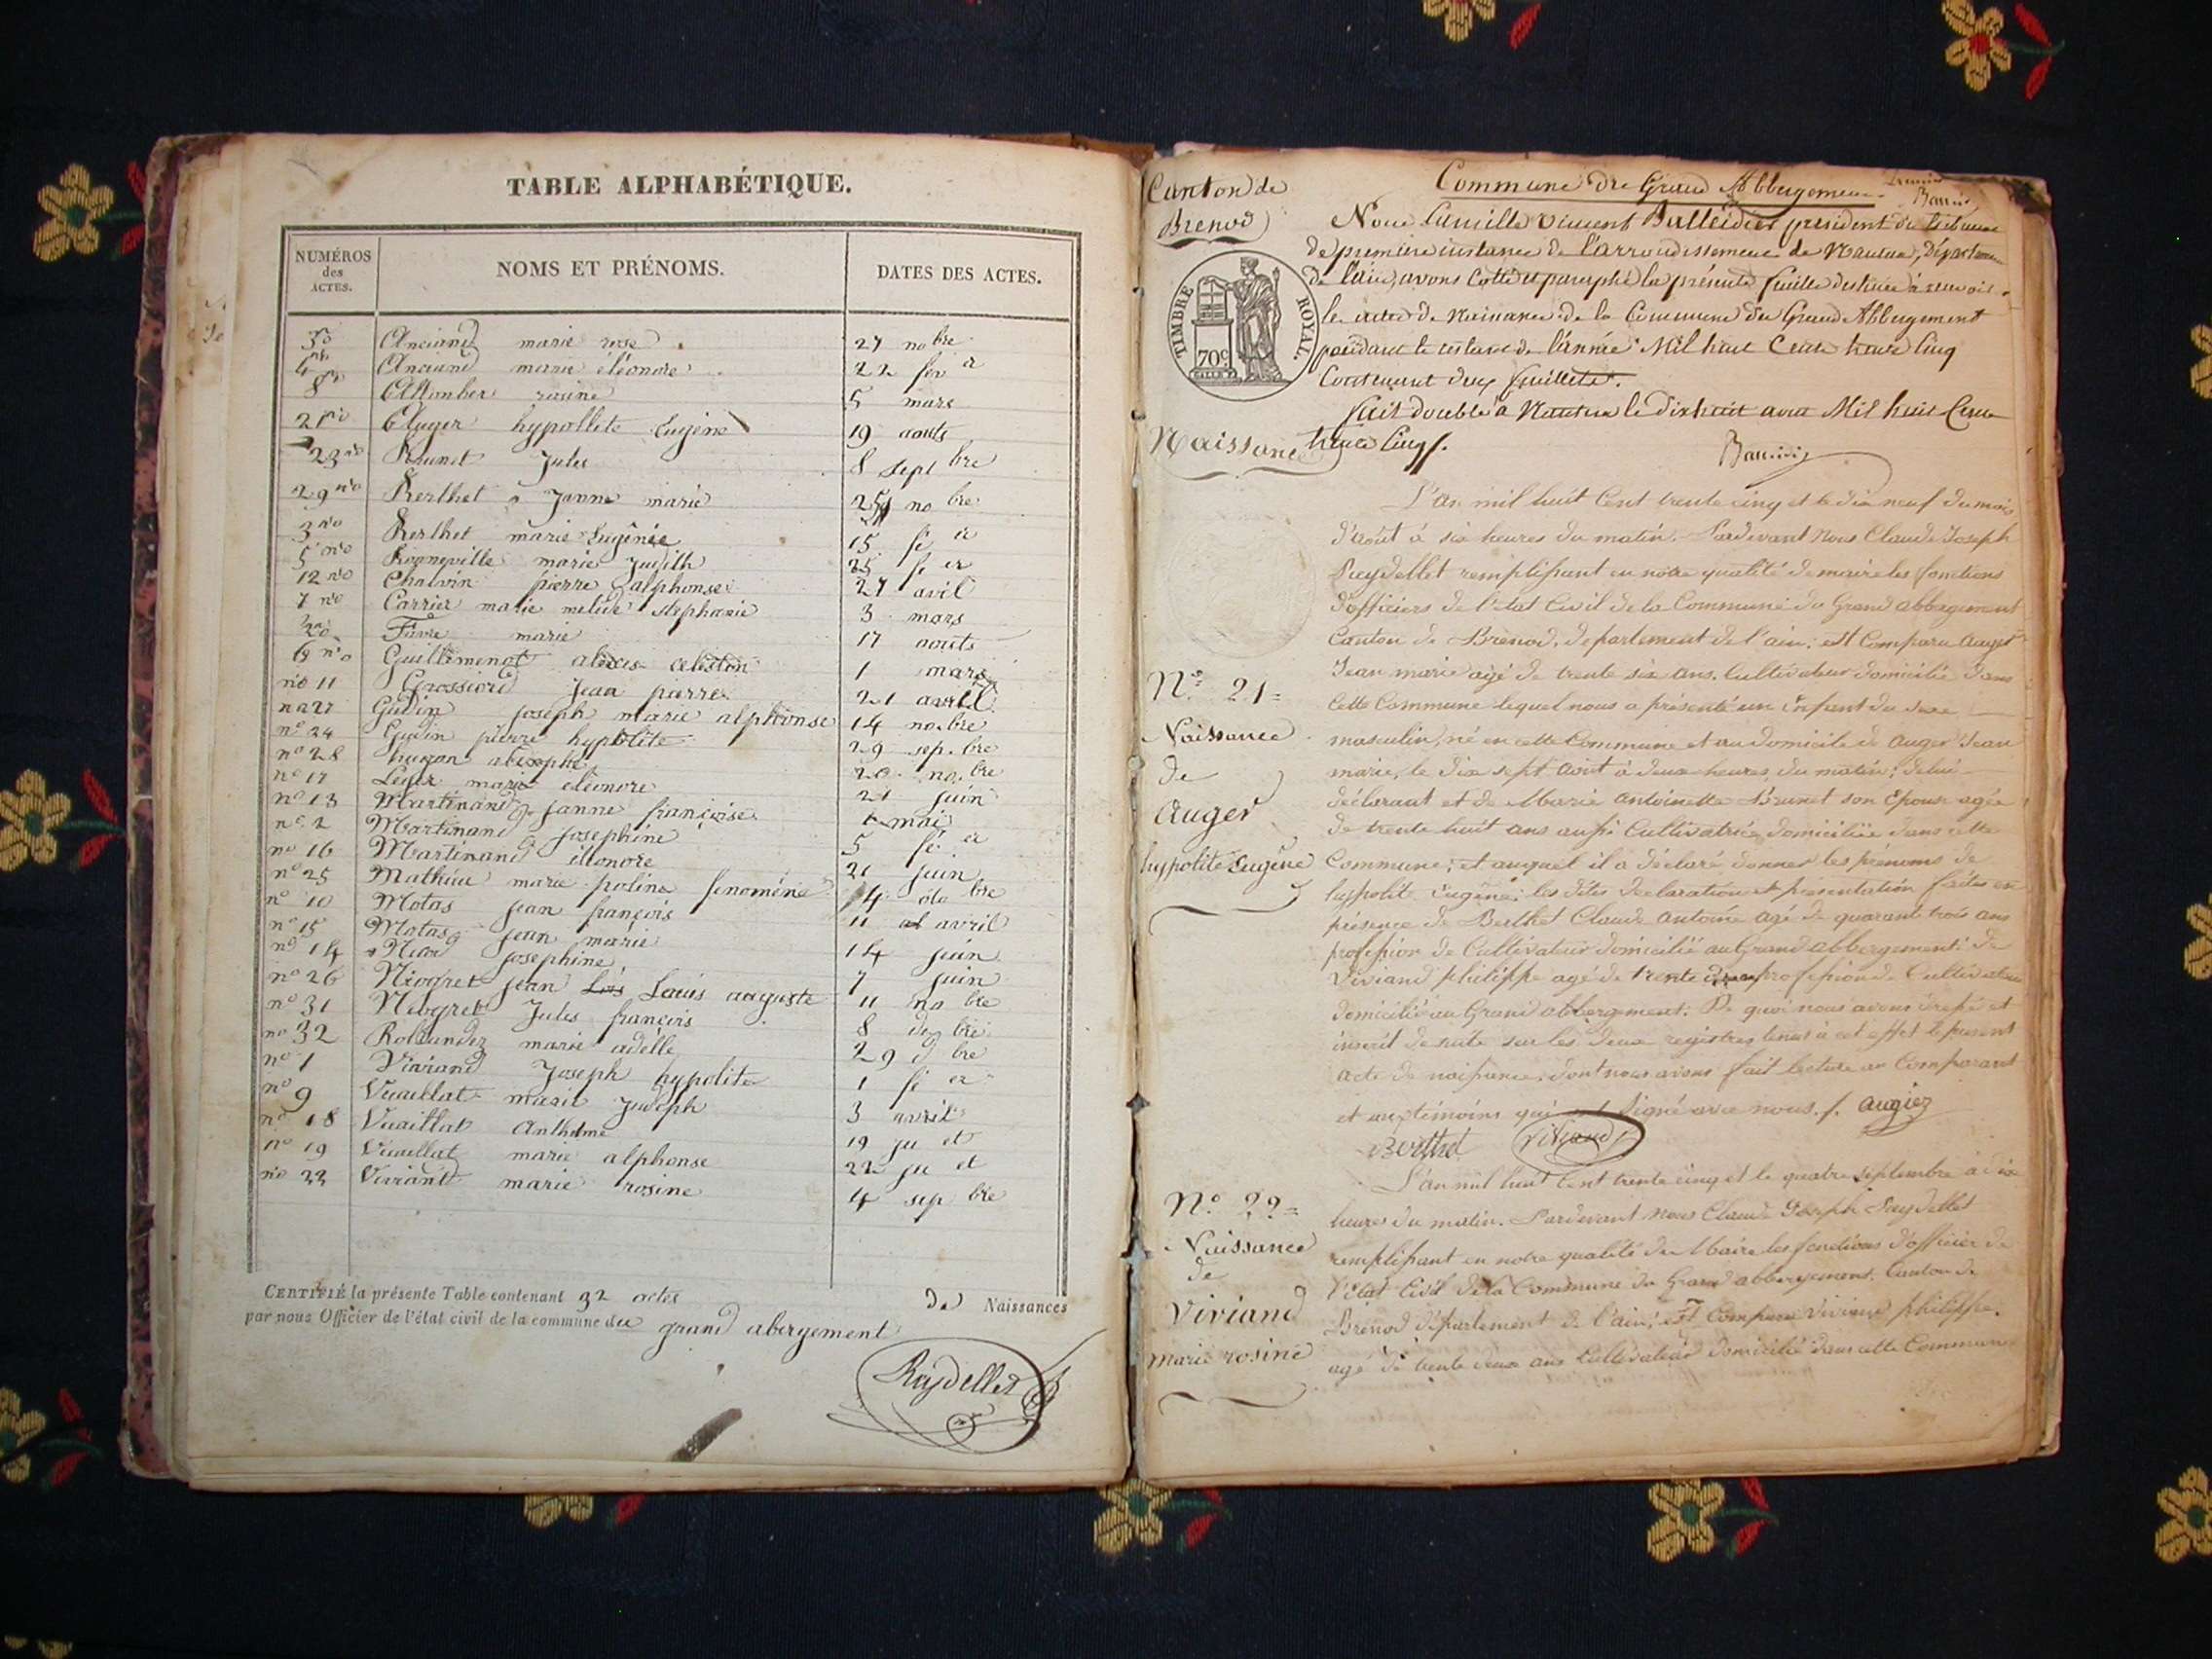 TABLE ALPHABÉTIQUE.
NUMÉROS
des
ACTES.
NOMS ET PRÉNOMS.
DATES DES ACTES.
30 Anciand marie rose 27 nobre
Anciand marie éléonore 22 fév er
8 rosine 5 mars
21 Auger hypollete Eugène 19 aouts
23 no Brunet Jules 8 sept bre
29 no Berthet Janne marie no bre
3 no Berthet marie Eugénie 15 fé er
5 no Bonneville marie Judith 25 fe er
12 no Chalvin pierre alphonse 27 avil
7 no Carrier marie melide stephanie 3 mars
20 Favre marie 17 aouts
6 no Guillemenot alexis celestin 1 mars
no 11 Grossiord Jean pierre 21 avril
no 27 Gudin joseph marie alphonse 14 no.bre
no 24 Gudin pierre hypolite 29 sep.bre
no 28 hugon 20 no.bre
no 17 Léger marie eléonore 21 juin
no 13 Martinand Janne françoise 1 mai
no 2 Martinand Josephine 5 fé er
no 16 Martinand élonore 21 juin
no 25 Mathieu marie poline fenoménie 4 bre
no 10 Motas jean françois 11 avril
no 15 Motas jean marie 14 juin
no 14 josephine 7 juin
no 26 Nivgret jean Louis auguste 11 no bre
no 31 Nivgret Jules françois 8 de bre
no 32 Rollandez marie adélle 29 d bre
no 1 Viviand Joseph hypolite 1 fé er
no 9 Vuaillat marie Judeph 3 avril
no 18 Vuaillat Anthelme 19 ju et
no 19 Vuaillat marie alphonse 22 ju et
no 22 Viviant marie rosine 4 sep bre
CERTIFIÉ la présente Table contenant 32 actes de Naissances
par nous Officier de l'état civil de la commune du grand abergement
Raydellet
Canton de
Brenod
Commune du Grand Abbergement
Nous Camille Vincent Balleidier président du tribunal
de première instance de l'arrondissement de Nantua, Département
de l'ain, avons Cotté et paraphé la présente feuille destinée à recevoir
les actes de Naissance de la Commune du Grand Abbergement
pendant le restant de l'année Mil huit Cent trente Cinq
Contenant deux feuillets.
Fait double à Nantua le dix huit aout Mil huit Cent
trente Cinq.
TIMBRE ROYAL.
70c
Naissance
L'an mil huit Cent trente cinq et le dix neuf du mois
d'août à six heures du matin. Pardevant Nous Claude Joseph
Raydellet remplissant en notre qualité de maire les fonctions
d'officiers de l'état Civil de la Commune du Grand abbergement
Canton de Brenod, departement de l'ain; est Comparu auger
Jean marie agé de trente six ans, Cultivateur domicilié dans
cette Commune lequel nous a présenté un Enfant du sexe
masculin, né en cette Commune et au domicile de auger Jean
marie, le dix sept août à deux heures du matin; de lui
déclarant et de Marie Antoinette Brunet son Epouse agée
de trente huit ans aussi Cultivatrice domiciliée dans cette
Commune; et auquel il a déclaré donner les prénoms de
hyppolite Eugène; les dites declaration et présentation faites en
présence de Berthet Claude Antoine agé de quarante trois ans
profession de Cultivateur domicilié au Grand abbergement: De
Viviand philippe agé de trente profession de Cultivateur
domicilié au Grand abbergement: De quoi nous avons dressé et
inscrit de suite sur les deux registres tenus à cet effet le present
acte de naissance, dont nous avons fait lecture au Comparant
et aux témoins qui ont signé avec nous. augiez
Berthet Viviand
No 21
Naissance
de
Auger
hypolite Eugène
L'an mil huit Cent trente cinq et le quatre septembre à dix
heures du matin. Pardevant Nous Claude Joseph Raydellet
remplissant en notre qualité de Maire les fonctions d'officier de
l'Etat Civil de la Commune du Grand abbergement, Canton de
Brenod département de l'ain; est Comparu Viviand philippe.
agé de trente deux ans Cultivateur domicilié dans cette Commune
No 22
Naissance
de
Viviand
marie rosine